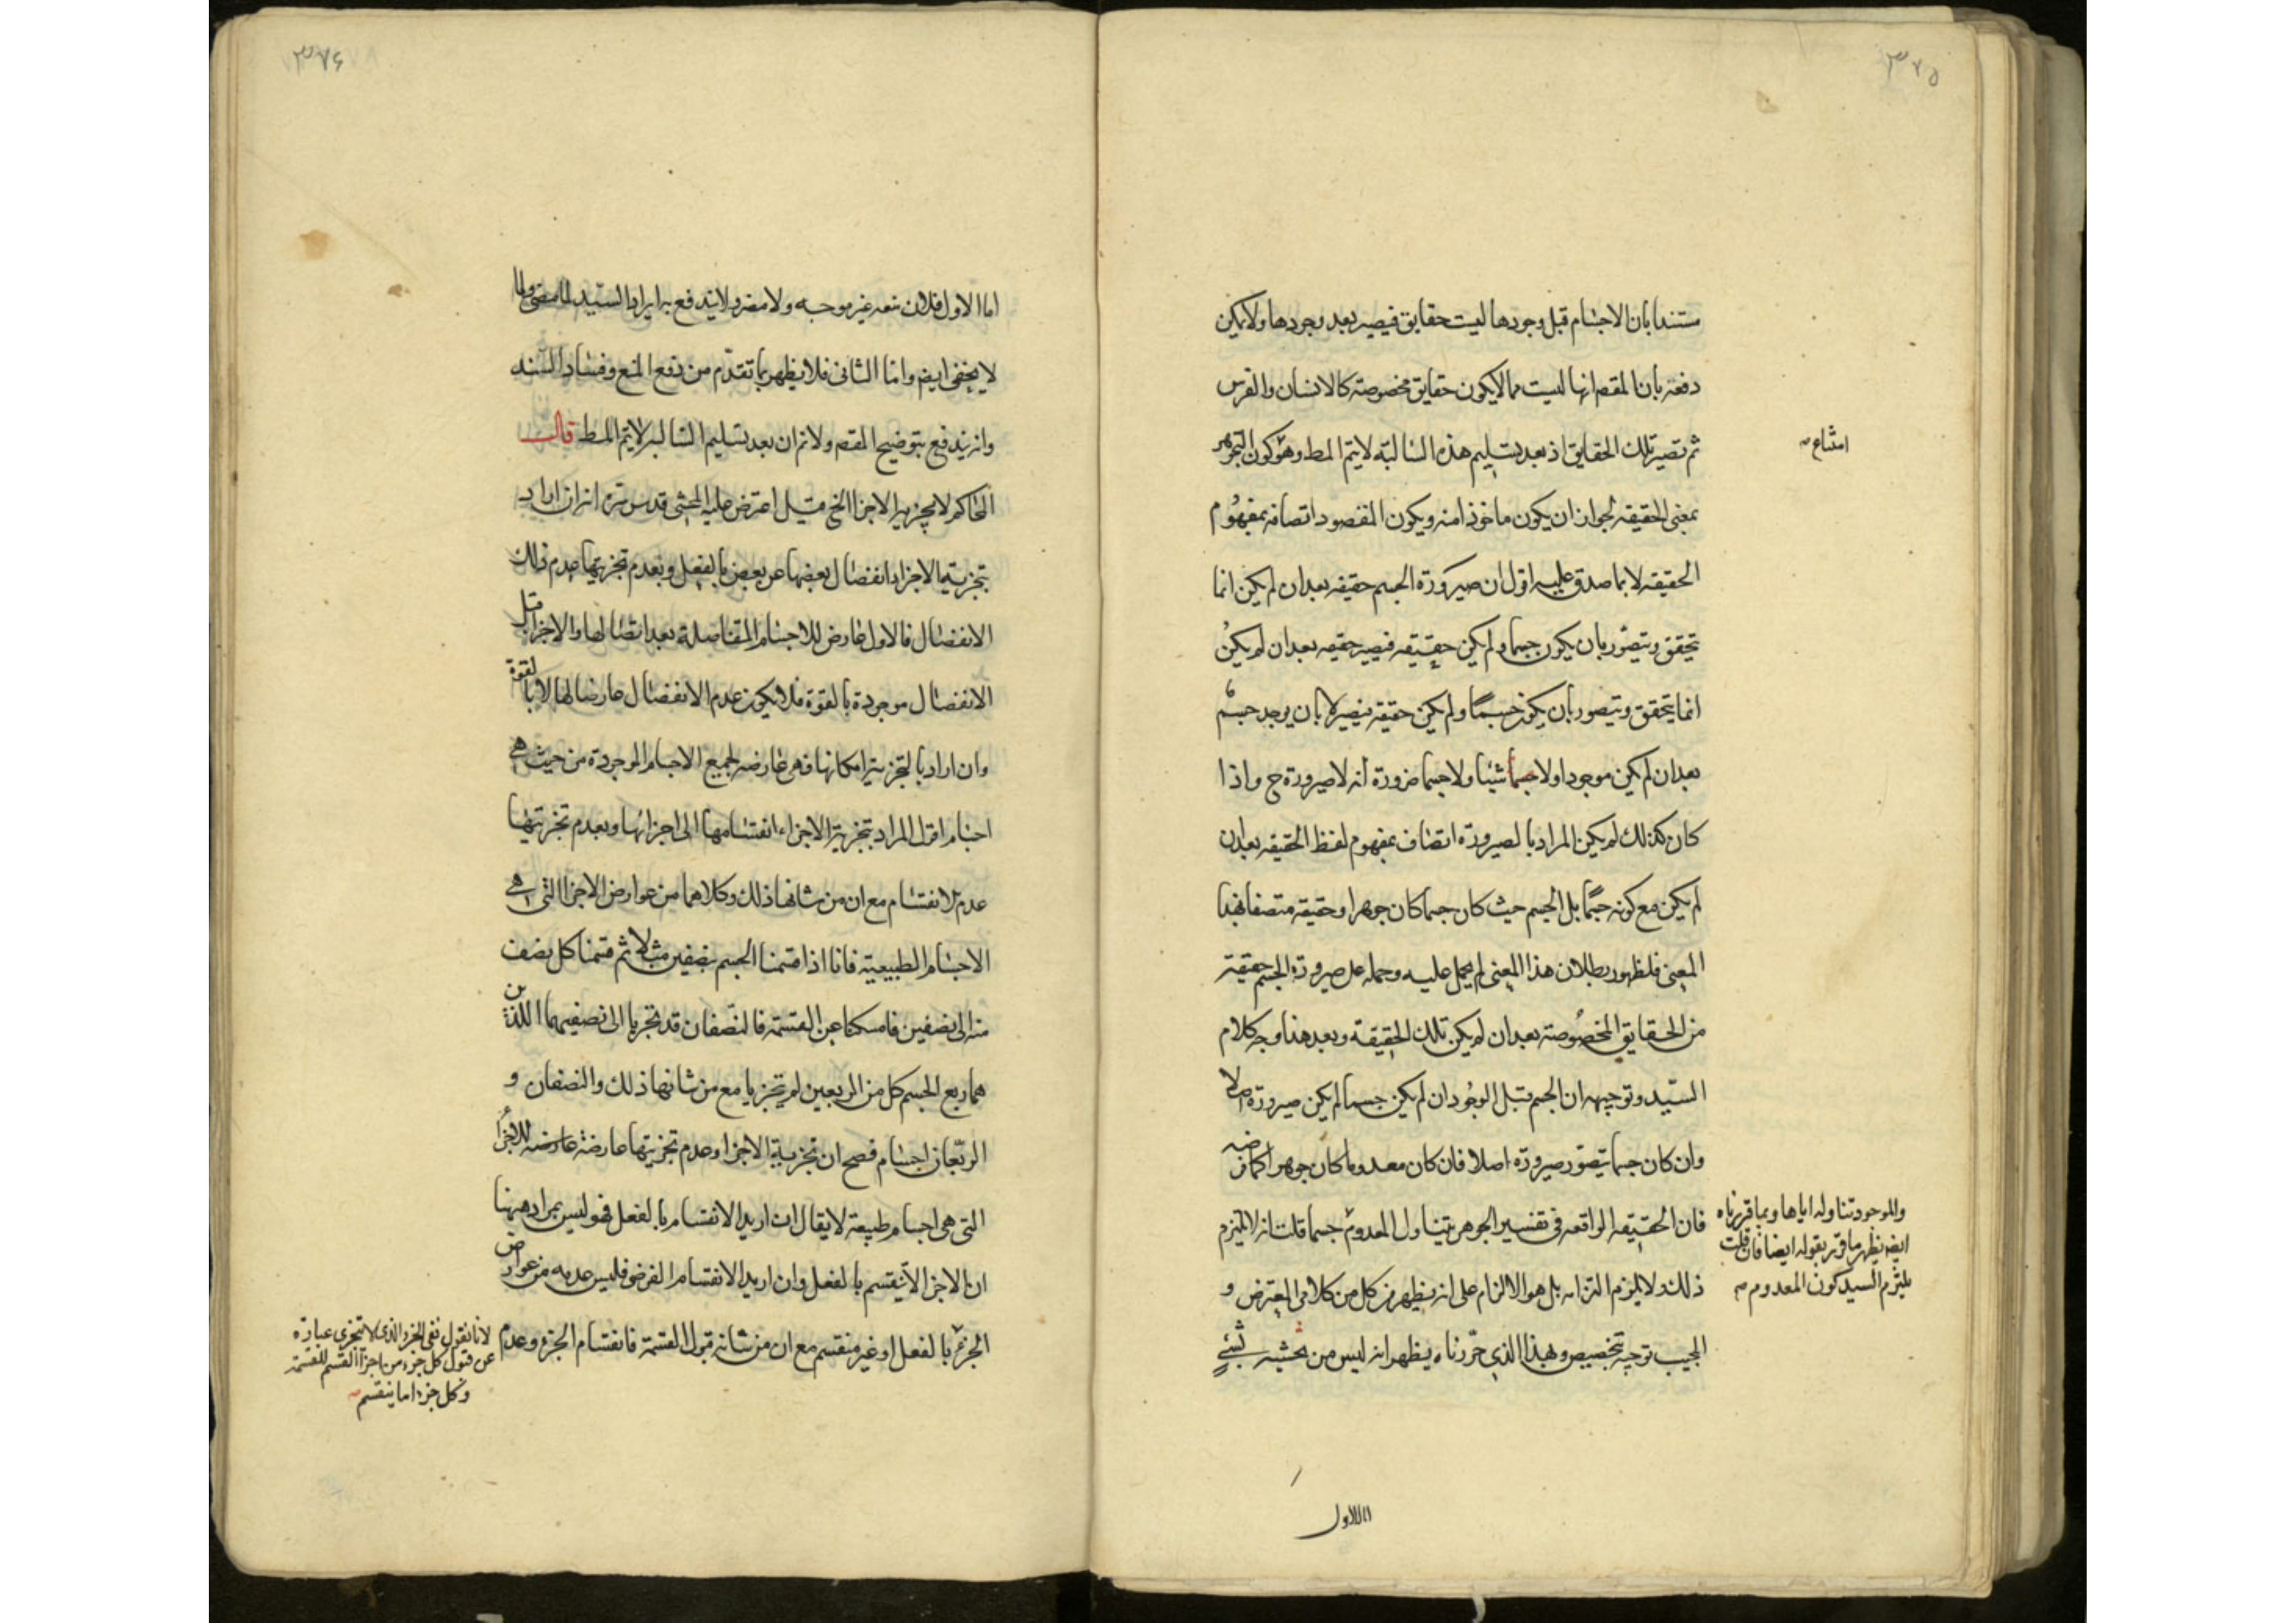 ٣٧٥
مستندا بان الاجسام قبل وجودها ليست حقايق فيصير بعد وجودها ولا يمكن
دفعه بان المقصم انها ليست مما لا يكون حقايق مخصوصة كالانسان والفرس
ثم تصير تلك الحقايق اذ بعد تسليم هذه السالبة لا يتم المط وهو كون التجوهر
امتناع
بمعنى الحقيقة لجواز ان يكون ماخوذا منه ويكون المقصود اتصافه بمفهوم
الحقيقه لا بما صدق عليه اقول ان صيرورة الجسم حقيقه بعد ان لم يكن انما
يتحقق ويتصور بان يكون جسما ولم يكن حقيقيه فيصير حقيقه بعد ان لم يكن
انما يتحقق ويتصور بان يكون جسمًا ولم يكن حقيقة فيصير لا بان يوجد جسم
بعد ان لم يكن موجودا ولا جسما شيئا ولا جسما ضرورة انه لا صيرورة ح واذا
كان كذلك لم يكن المراد بالصيرورة اتصاف بمفهوم لفظ الحقيقه بعد ان
لم يكن مع كونه جسمًا بل الجسم حيث كان جسما كان جوهرا وحقيقه متصفا بهذا
المعنى فلظهور بطلان هذا المعنى لم يحمل عليه وحمله على صيرورة الجسم حقيقة
من الحقايق المخصوصة بعد ان لم يكن تلك الحقيقة وبعد هذا وجه كلام
السيد وتوجيهه ان الجسم قبل الوجود ان لم يكن جسما لم يكن صيرورة اصلا
وان كان جسما يتصور صيرورة اصلا فان كان معدوما كان جوهرا كما فرضه
فان الحقيقه الواقعه في تفسير الجوهر يتناول المعدوم جسما قلت انه لا يلتزم
والموجود تناوله اياها وبما قررناه
ايضه يظهر ما قرر بقوله ايضا فان قلت
يلتزم السيد كون المعدوم
ذلك ولا يلزم التزامه بل هو الالزام على انه يظهر من كل من كلامى المعترض و
المجيب توجيه تخصيص وبهذا الذي حررناه يظهر انه ليس من تحشيه بشيءٍ
اما الاول
٣٧٦
اما الاول فلان منعه غير موجه ولا مضر ولا يندفع بايراد السيد
لا يخفى ايضه واما الثانى فلا يظهر بما تقدم من دفع المنع وفساد السند
وانه يندفع بتوضيح المقصم ولا نم ان بعد تسليم السالبه لا يتم المط قال
الحاكم لا تجزية الاجزا الخ قيل اعترض عليه المحشى قدس سره انه ان اراد
بتجزية الاجزا انفصال بعضها عن بعض بالفعل وبعدم تجزيتها عدم ذلك
الانفصال فالاول عارض للاجسام المتفاصلة بعد اتصالها والاجزا قبل
الانفصال موجودة بالقوة فلا يكون عدم الانفصال عارضا لها الا بالقوة
وان اراد بالتجزية امكانها فهى عارضه لجميع الاجسام الموجودة من حيث هى
اجسام اقول المراد بتجزية الاجزاء انقسامها الى اجزائها وبعدم تجزيتها
عدم الانقسام مع ان من شانها ذلك وكلاهما من عوارض الاجزا التى هى
الاجسام الطبيعية فانا اذا قسمنا الجسم بنصفين مثلا ثم قسمنا كل نصف
منه الى نصفين فامسكنا عن القسمة فالنصفان قد تجزيا الى نصفيهما اللذين
هما ربع الجسم كل من الربعين لم يتجزيا مع من شانها ذلك والنصفان و
الربعان اجسام فصح ان تجزية الاجزا وعدم تجزيتها عارضة عارضه للاجزا
التى هى اجسام طبيعة لا يقال ان اريد الانقسام بالفعل فهو ليس بمراد ههنا
ان الاجزا لا ينقسم بالفعل وان اريد الانقسام الفرضى فليس عدمه من عوارض
الجزء بالفعل او غير منقسم مع ان من شانه قبول القسمة فانقسام الجزء وعدم
لانا نقول نفى الجزء الذى لا يتجزى عبارة
عن قبول كل جزء من اجزا القسم للقسمة
وكل جزء اما ينقسم